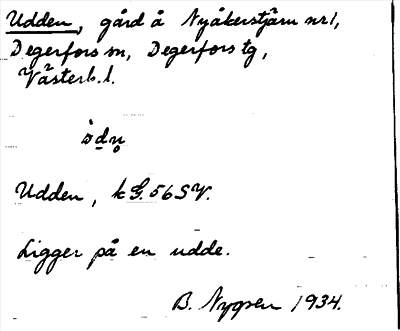 Udden, gård å Nyåkerstjärn nr 1,
Degerfors sn, Degerfors tg,
Västerb. l.
Udden, k G. 56 SV.
Ligger på en udde.
B. Nygren 1934.